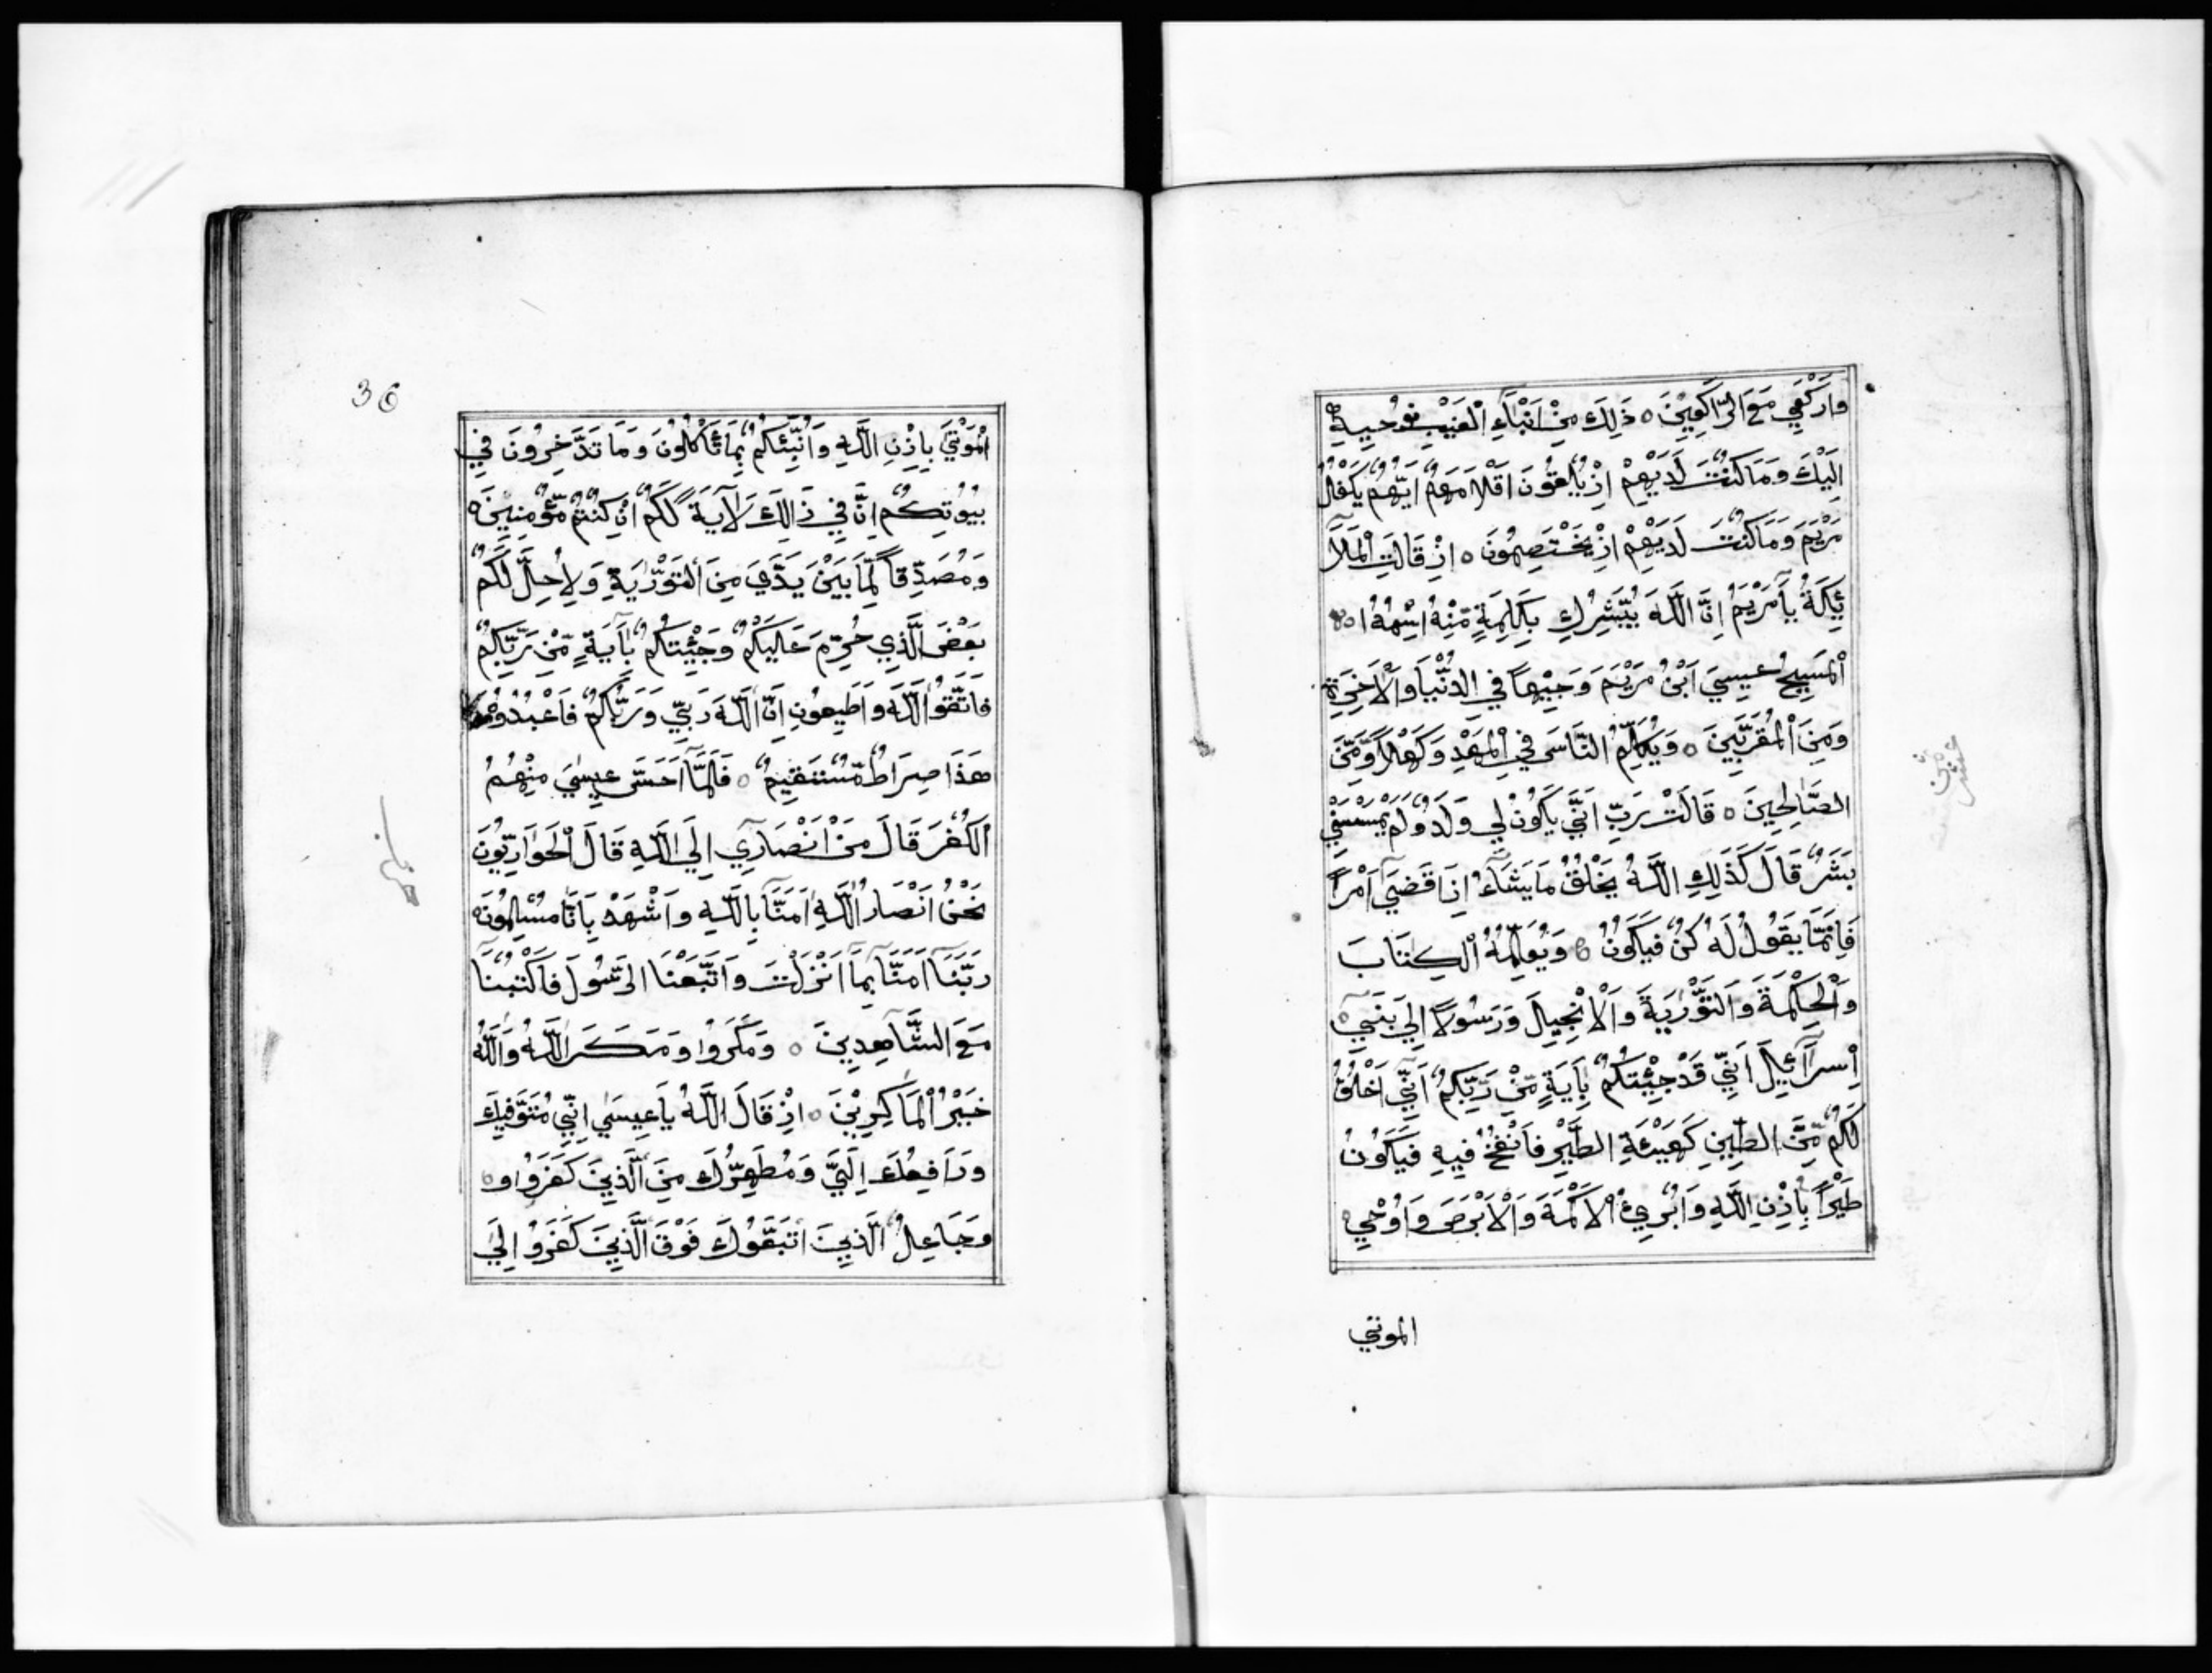 وَارْكَعِي مَعَ الرَّاكِعِيْنَ ه ذَلِكَ مِنْ اَنْبَآءِ الْغَيْبِ نُوْحِيهِ
اِلَيْكَ وَمَا كُنْتَ لَدَيْهِمْ اِذْ يُلْقُوْنَ اَقْلَامَهُمْ اَيُّهُمْ يَكْفُلُ
مَرْيَمَ وَمَا كُنْتَ لَدَيْهِمْ اِذْ يَخْتَصِمُونَ ه اِذْ قَالَتِ الْمَلَآ
ئِكَةُ يَآمَرْيَمُ اِنَّ اللَّهَ يُبَشِّرُكِ بِكَلِمَةٍ مِّنْهُ اسْمُهُ ا
الْمَسِيحُ عِيسَي ابْنُ مَرْيَمَ وَجِيْهاً فِي الدُّنْيَا وَالْآخِرَةِ
وَمِنَ الْمُقَرَّبِينَ ه وَيُكَلِّمُ النَّاسَ فِي الْمَهْدِ وَكَهْلاً وَّمِنَ
الصَّالِحِينَ ه قَالَتْ رَبِّ اَنَّي يَكُوْنُ لِي وَلَدٌ وَلَمْ يَمْسَسْنِي
بَشَرٌ قَالَ كَذَلِكِ اللَّهُ يَخْلُقُ مَا يَشَآءُ اِذَا قَضَي اَمْراً
فَاِنَّمَا يَقُولُ لَهُ كُنْ فَيَكُونُ ه وَيُعَلِّمُهُ الْكِتَابَ
وَالْحِكْمَةَ وَالتَّوْرٰيةَ وَالْاِنْجِيلَ وَرَسُولاً اِلَي بَنِي
اِسْرَآئِيلَ اَنِّي قَدْ جِئْتُكُمْ بِاَيَةٍ مِّنْ رَبِّكُمْ اَنِّي اَخْلُقُ
لَكُمْ مِّنَ الطِّينِ كَهَيْئَةِ الطَّيْرِ فَاَنْفُخُ فِيهِ فَيَكُونُ
طَيْراً بِاِذْنِ اللَّهِ وَاُبْرِئُ الْاَكْمَهَ وَالْاَبْرَصَ وَاُوْحْيِ
الموتي
36
الْمَوْتَي بِاِذْنِ اللَّهِ وَاُنَبِّئُكُمْ بِمَا تَاْكُلُونَ وَمَا تَدَّخِرُونَ فِي
بُيُوتِكُمْ اِنَّ فِي ذَالِكَ لَاَيَةً لَّكُمْ اِنْ كُنْتُمْ مُّؤْمِنِيْنَ ه
وَمُصَدِّقاً لِّمَا بَيْنَ يَدَّيَ مِنَ التَّوْرٰيةِ وَلِاُحِلَّ لَكُمْ
بَعْضَ الَّذِي حُرِّمَ عَلَيْكُمْ وَجِئْتُكُمْ بِاَيَةٍ مِّنْ رَّبِّكُمْ
فَاتَّقُوا اللَّهَ وَاَطِيعُونِ اِنَّ اللَّهَ رَبِّي وَرَبُّكُمْ فَاعْبُدُوْهُ
هَذَا صِرَاطٌ مُّسْتَقِيمٌ ه فَلَمَّا اَحَسَّ عِيسَي مِنْهُمُ
الْكُفْرَ قَالَ مَنْ اَنْصَارِي اِلَي اللَّهِ قَالَ الْحَوَارِيُّونَ
نَحْنُ اَنْصَارُ اللَّهِ اَمَنَّا بِاللَّهِ وَاَشْهَدْ بِاَنَّا مُسْلِمُونَ
رَبَّنَا اَمَنَّا بِمَا اَنْزَلْتَ وَاتَّبَعْنَا الرَّسُولَ فَاكْتُبْنَا
مَعَ الشَّاهِدِينَ ه وَمَكَرُوا وَمَكَرَ اللَّهُ وَاللَّهُ
خَيْرُ الْمَاكِرِيْنَ ه اِذْ قَالَ اللَّهُ يَاعِيسَي اِنِّي مُتَوَفِّيكَ
وَرَافِعُكَ اِلَيَّ وَمُطَهِّرُكَ مِنَ الَّذِينَ كَفَرُوا و
وَجَاعِلُ الَّذِينَ اتَّبَعُوكَ فَوْقَ الَّذِينَ كَفَرُوْ اِلَي